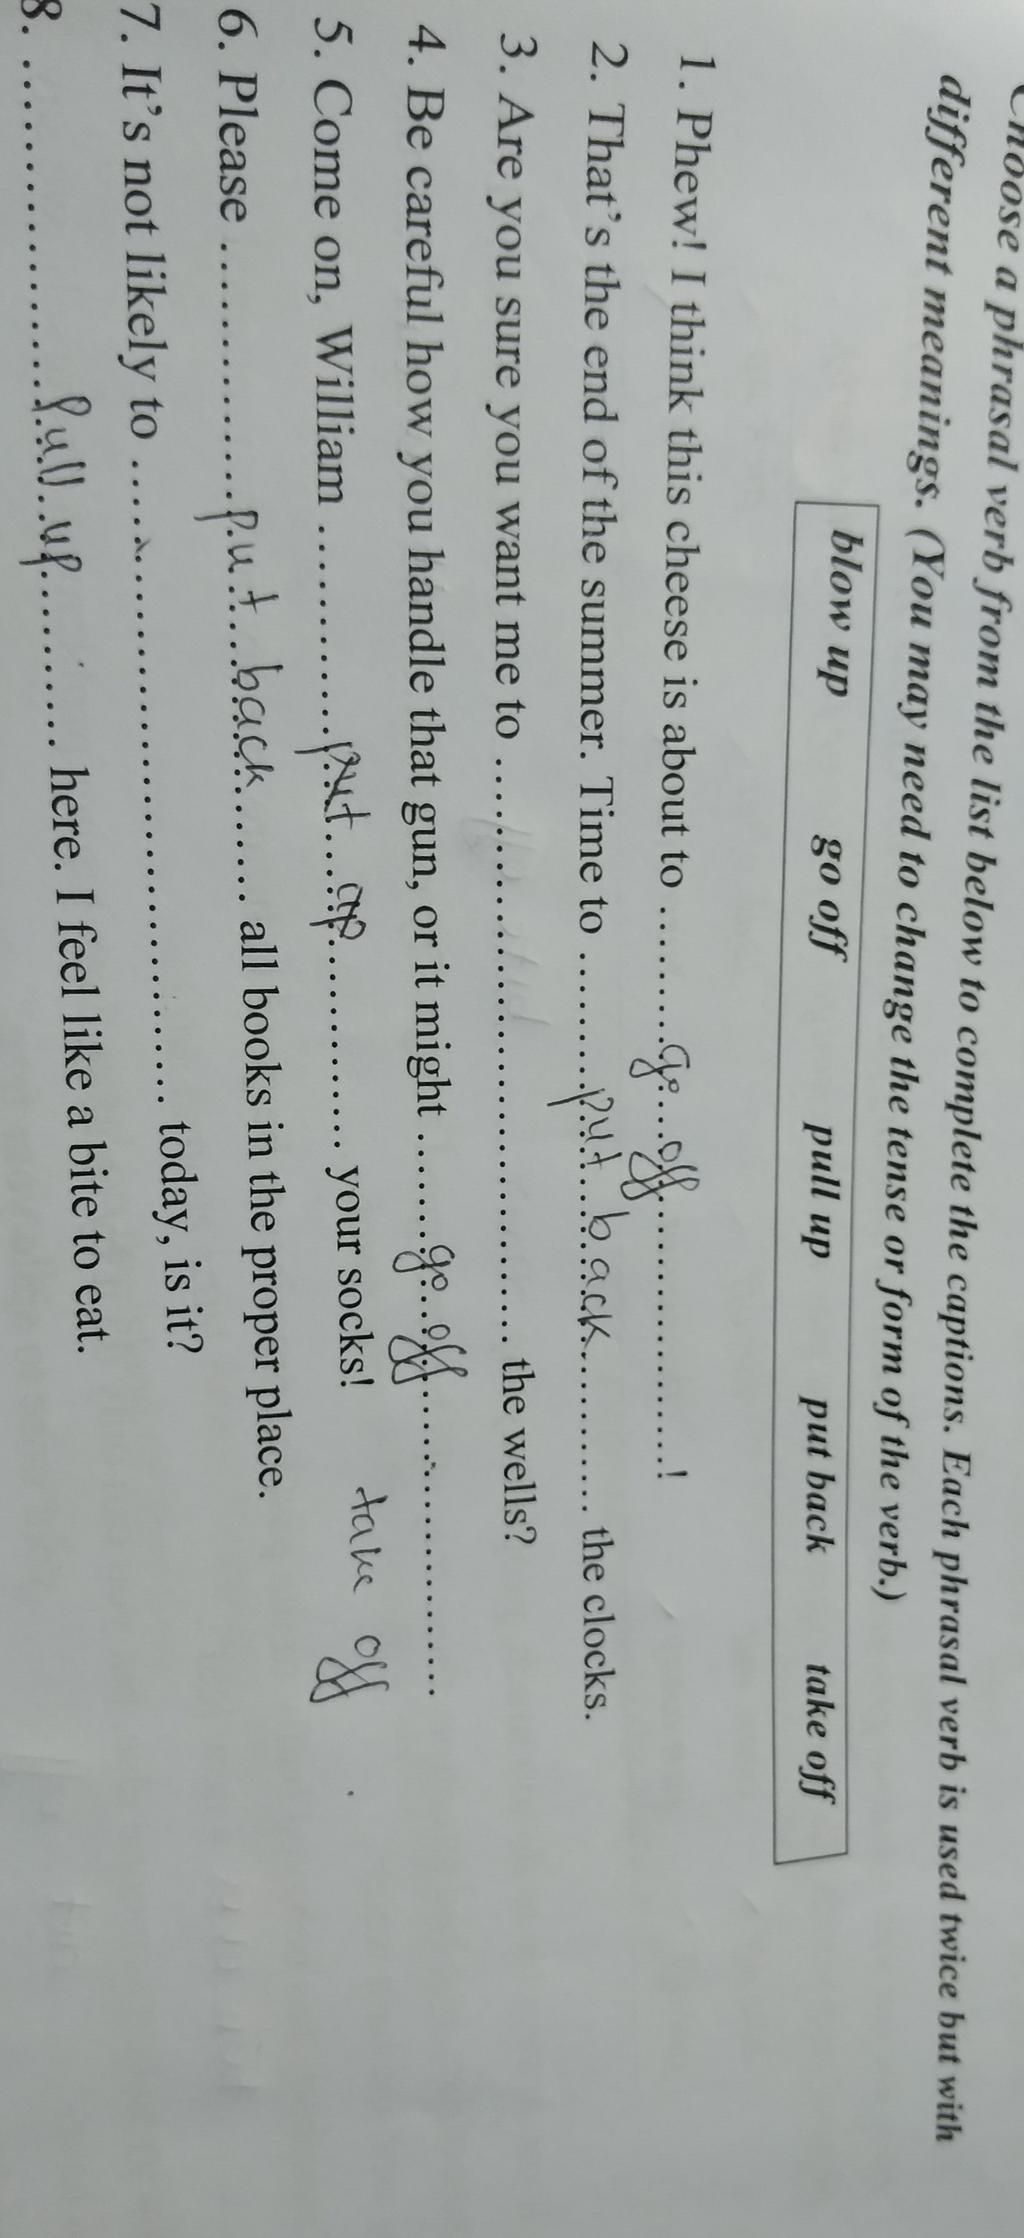 Choose a phrasal verb from the list below to complete the captions. Each phrasal verb is used twice but with
different meanings. (You may need to change the tense or form of the verb.)
blow up go off pull up put back take off
1. Phew! I think this cheese is about to .........go...off.....................!
2. That's the end of the summer. Time to .........put back........... the clocks.
3. Are you sure you want me to .......................................... the wells?
4. Be careful how you handle that gun, or it might .......go..off.....................
5. Come on, William ..............put...up............. your socks! take off
6. Please .................put...back....... all books in the proper place.
7. It's not likely to .......................................... today, is it?
8. ......................Pull..up.......... here. I feel like a bite to eat.